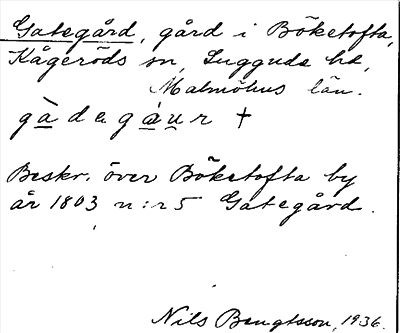 Gategård, gård i Böketofta,
Kågeröds sn, Luggude hd,
Malmöhus län.
gàdegáur †
Beskr. över Böketofta by
år 1803 n:r 5 Gategård.
Nils Bengtsson, 1936.